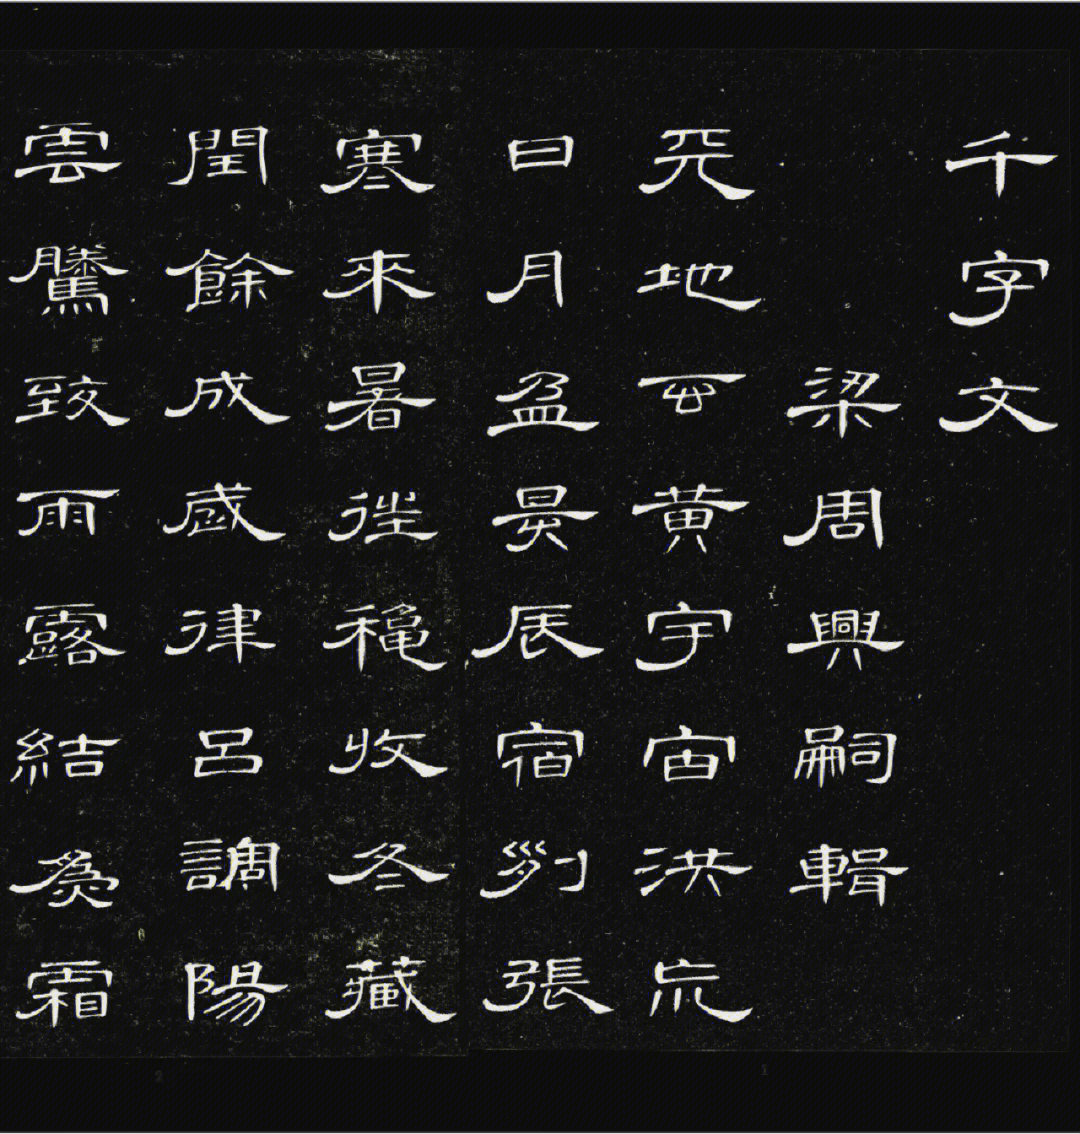 千字文
梁周興嗣輯
天地玄黃宇宙洪荒
日月盈昃辰宿列張
寒來暑往秋收冬藏
閏餘成歲律呂調陽
雲騰致雨露結為霜